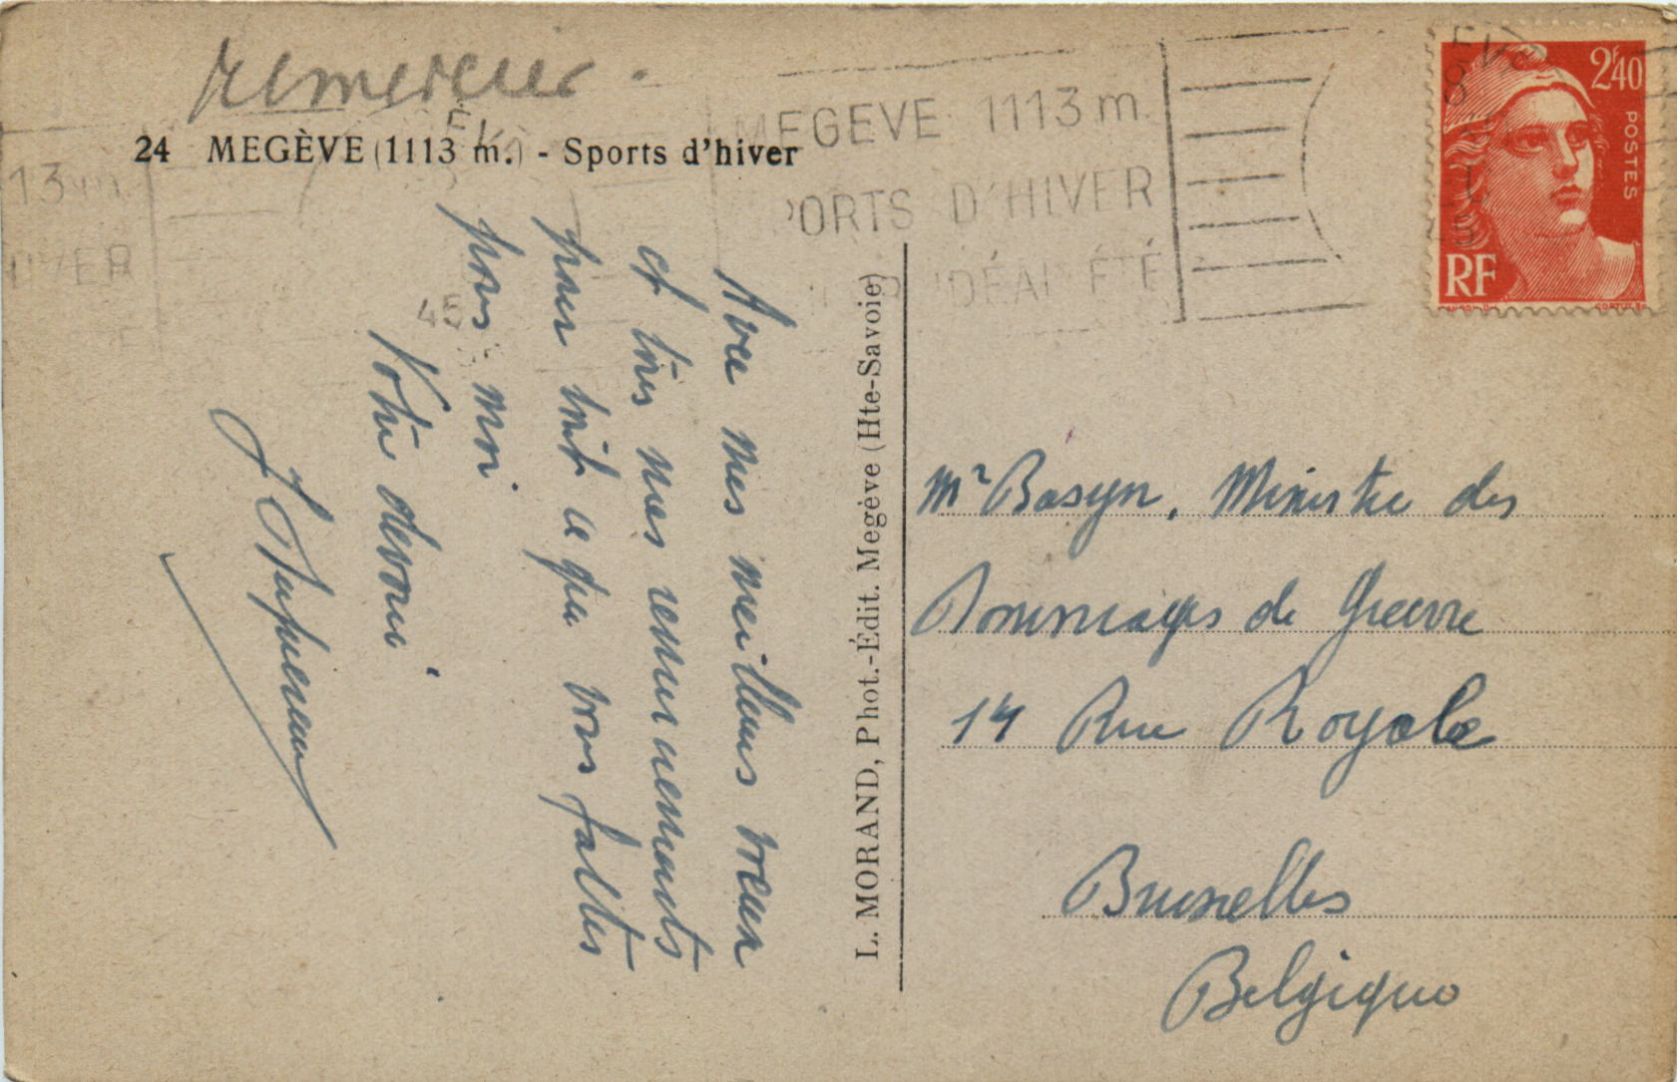 remercier.
24 MEGÈVE (1113 m.) - Sports d'hiver
MEGEVE 1113 m.
SPORTS D'HIVER
IDÉAL ÉTÉ
2F40
POSTES
RF
13 m.
HIVER
45
Avec mes meilleurs vœux
et tous mes remerciements
pour tout ce que vous faites
pour moi.
Votre dévoué
L. MORAND, Phot.-Édit. Megève (Hte-Savoie)
Mr Basyn, Ministre des
Dommages de Guerre
14 Rue Royale
Bruxelles
Belgique